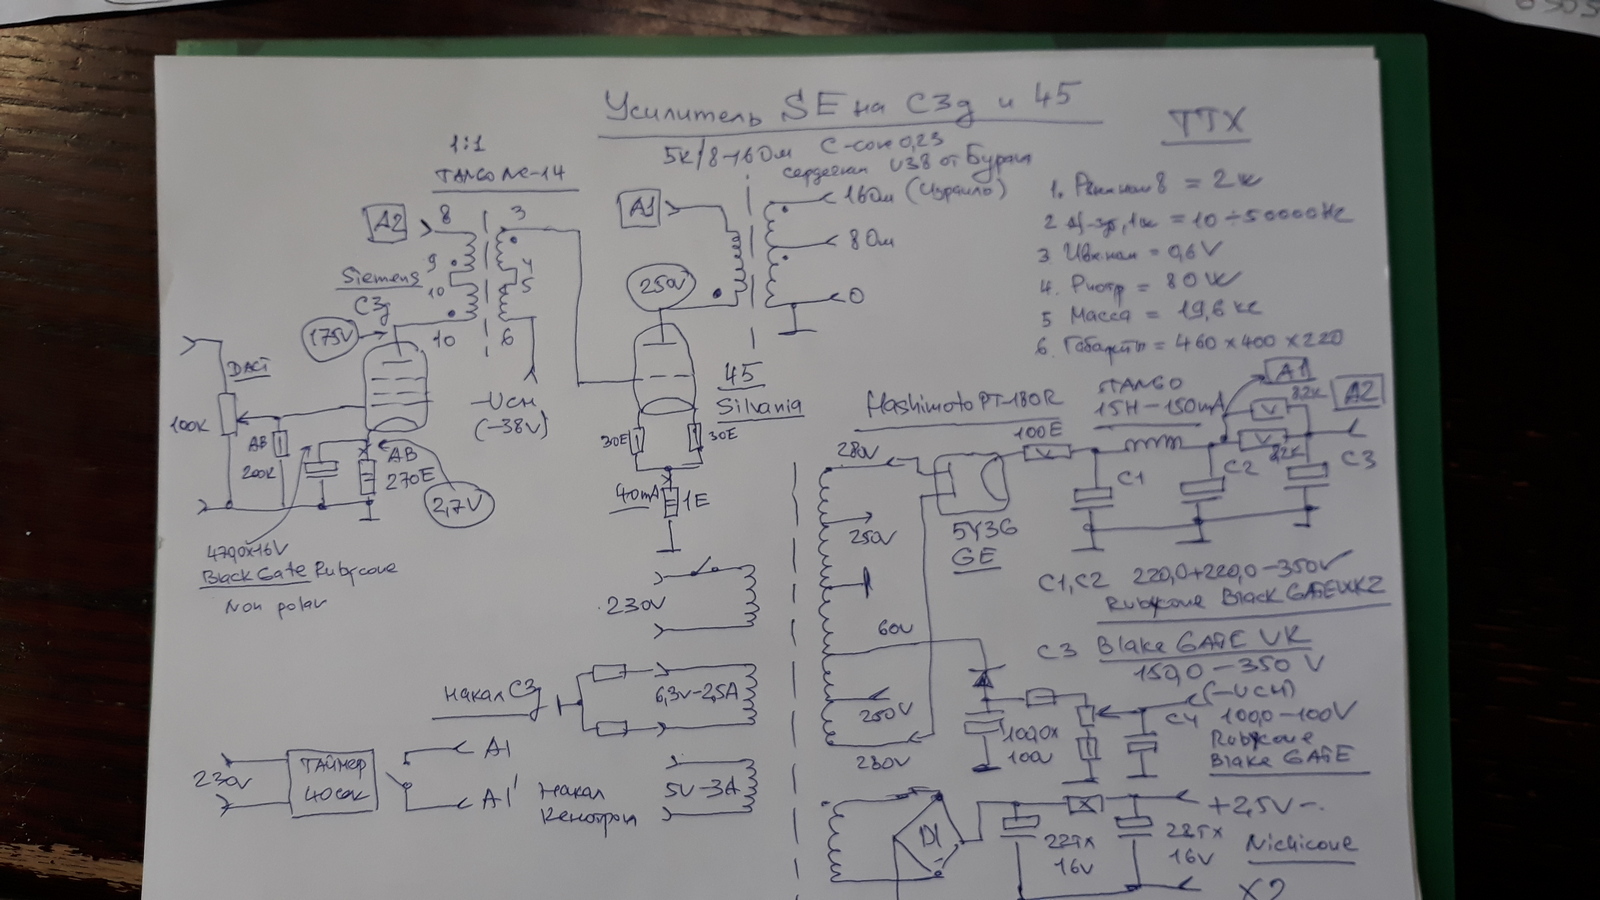 Усилитель SE на C3g и 45
5K/8-16 Ом C-core 0,23
сердечник U38 от Бурана
(Израиль)
ТТХ
1. Рвых ном 8 = 2 w
2 = 10 ÷ 50000 Hz
3 Uвх ном = 0,6 V
4. Рпотр = 80 W
5 Масса = 19,6 кг
6. Габариты = 460 x 400 x 220
1:1
TANGO NC-14
A2
8
3
9
4
5
10
10
6
Siemens
C3g
175V
-Uсм
(-38V)
A1
250V
16 Ом
8 Ом
0
45
Silvania
30E
30E
40mA
1E
DACT
100K
AB
200K
AB
270E
2,7V
470,0x16V
Black Gate Rubycone
Non polar
230V
Накал C3g
6,3V-2,5A
230V
Таймер
40 сек
A1
A1'
Накал
Кенотрон
5V-3A
Hashimoto PT-180R
STANGO
15H-150mA
A1
82K
A2
82K
280V
100E
5Y3G
GE
C1
C2
C3
250V
60V
250V
280V
C1, C2 220,0+220,0-350V
Rubycone Black GATE WKZ
C3 Blake GATE VK
150,0-350V
(-Uсм)
C4 100,0-100V
Rubycone
Blake GATE
100,0x
100
D1
22Tx
16V
22Tx
16V
+2,5V-
Nichicone
X2